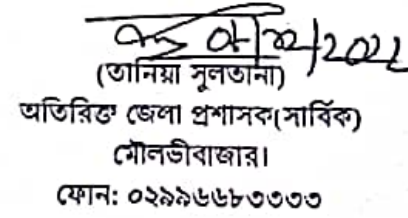 (তানিয়া সুলতানা)
অতিরিক্ত জেলা প্রশাসক(সার্বিক)
মৌলভীবাজার।
ফোন: ০২৯৯৬৬৮৩৩৩৩